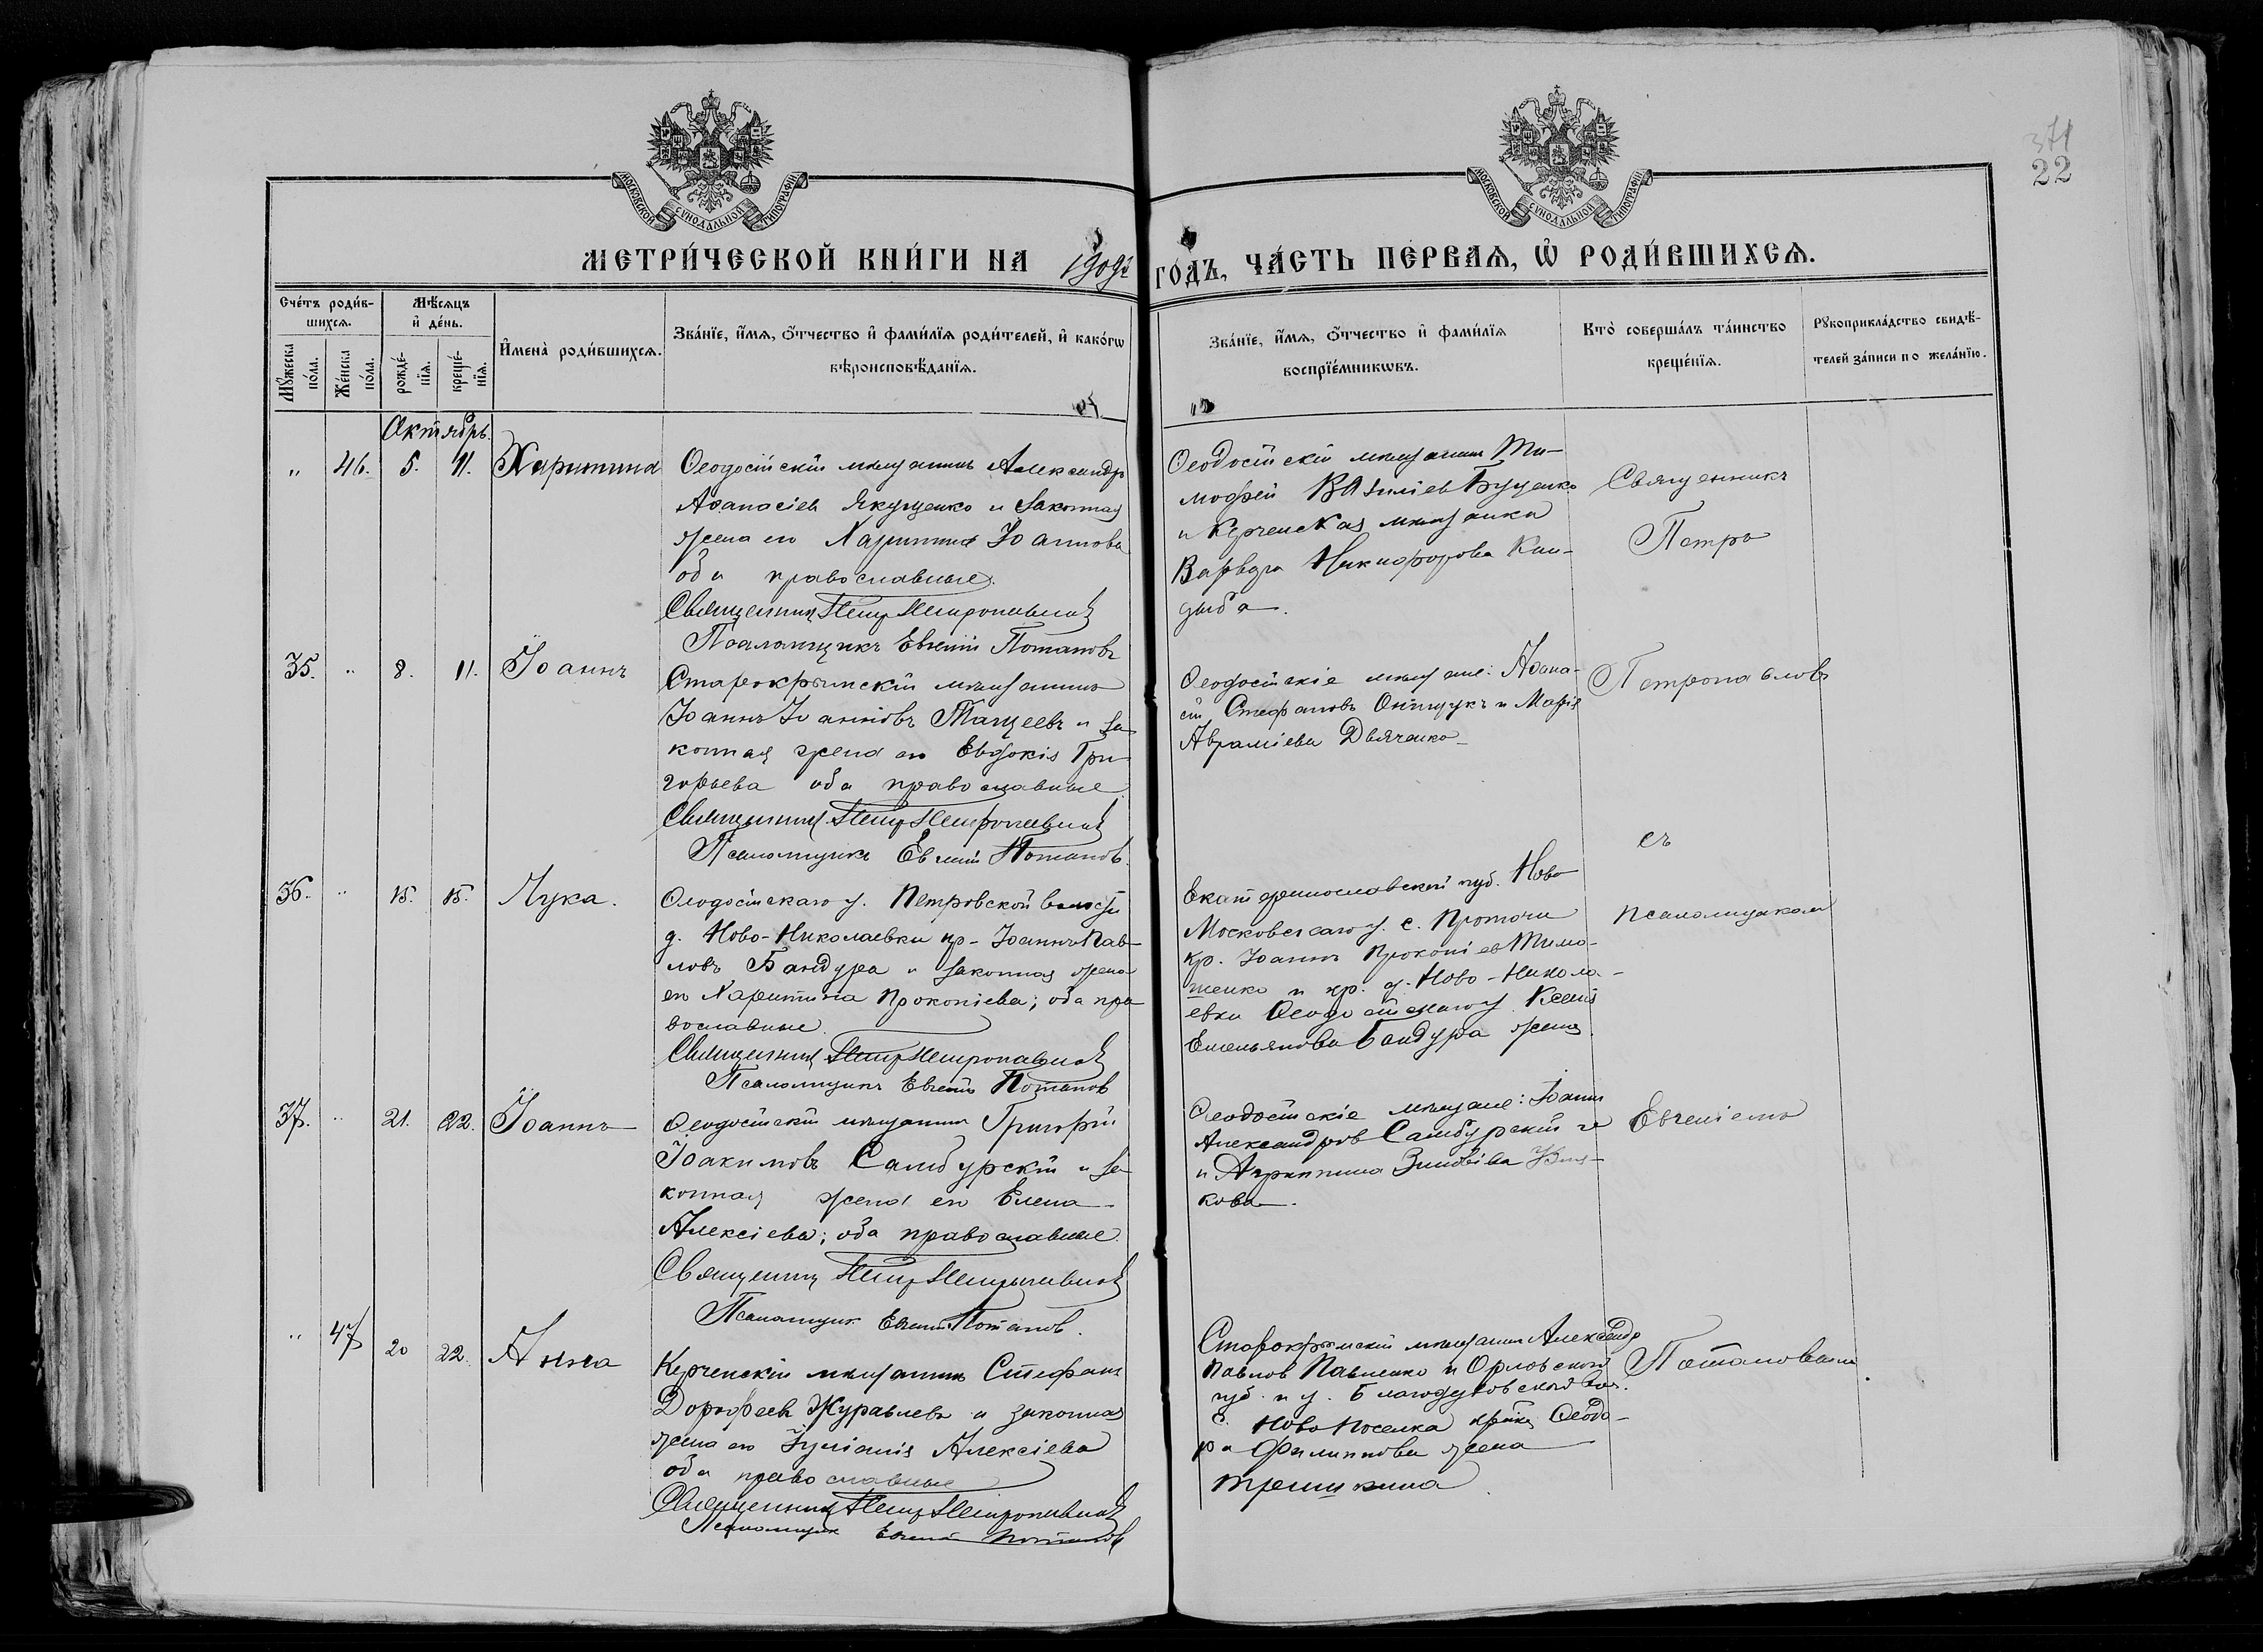 371
22
МОСКОВСКОЙ СѴНОДАЛЬНОЙ ТИПОГРАФІИ
МОСКОВСКОЙ СѴНОДАЛЬНОЙ ТИПОГРАФІИ
МЕТРИ́ЧЕСКОЙ КНИ́ГИ НА 1909й ГО́ДЪ, ЧА́СТЬ ПЕ́РВАЯ, Ѡ РОДИ́ВШИХСЯ.
Сче́тъ роди́вшихся.
Мꙋ́жеска по́ла.
Же́нска по́ла.
Мѣ́сяцъ и де́нь.
рожде́нїя.
креще́нїя.
И́мена̀ роди́вшихся.
Зва́нїе, и́мя, ѻ́тчество и фами́лїя роди́телей, и како́гѡ
вѣроисповѣ́данїя.
Зва́нїе, и́мя, ѻ́тчество и фами́лїя
воспрїе́мникѡвъ.
Кто̀ соверша́лъ та́инство
креще́нїя.
Рꙋкоприкла́дство свидѣ́телей за́писи по жела́нїю.
Октябрь.
" 46. 5. 11. Харитина
Ѳеодосійскій мѣщанинъ Александръ
Аѳанасіевъ Якущенко и законная
жена его Харитина Іоаннова
оба православные.
Священникъ Петръ Петропавловъ
Псаломщикъ Евгеній Потаповъ
Ѳеодосійскій мѣщанинъ Ти-
мофей Василіев Буценко
и Керченская мѣщанка
Варвара Никифорова Кан-
дыба.
Священникъ
Петръ
35. " 8. 11. Іоаннъ
Старокрымскій мѣщанинъ
Іоаннъ Іоанновъ Тащеевъ и за-
конная жена его Евдокія Гри-
горьева оба православные
Священникъ Петръ Петропавловъ
Псаломщикъ Евгеній Потаповъ.
Ѳеодосійскіе мѣщане: Аѳана-
сій Стефановъ Онищукъ и Марія
Авраміева Дьяченко
Петропавловъ
съ
36. " 15. 15. Лука.
Ѳеодосійскаго у. Петровской волости
д. Ново-Николаевки кр- Іоаннъ Пав-
ловъ Бандура и законная жена
его Харитина Прокопіева; оба пра-
вославные.
Священникъ Петръ Петропавловъ
Псаломщикъ Евгеній Потаповъ
Екатеринославской губ. Ново
Московскаго у. с. Проточи
кр. Іоаннъ Прокопіев Тимо-
шенко и кр. д. Ново-Никола-
евки Ѳеодосійскаго у. Ксенія
Емельянова Бандура жена.
псаломщикомъ
37. " 21. 22. Іоаннъ
Ѳеодосійскій мѣщанинъ Григорій
Іоакимовъ Самбурскій и за-
конная жена его Елена
Алексіева; оба православные.
Священникъ Петръ Петропавловъ
Псаломщик Евгеній Потапов.
Ѳеодосійскіе мѣщане: Іоаннъ
Александров Самбурскій
и Агриппина Зиновіева
кова.
Евгеніемъ
" 47 20 22. Анна
Керченскій мѣщанинъ Стефанъ
Дорофеевъ Журавлевъ и законная
жена его Іуліанія Алексіева
оба православные
Священникъ Петръ Петропавловъ
Псаломщик Евгеній Потапов
Старокрымскій мѣщанин Александр
Павлов Павленко и Орловской
губ. и у. Благодуховской вол.
с. Ново Поселка Ѳеодо-
ра Филиппова жена
трешкина
Потаповымъ